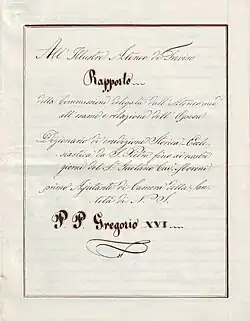 All' Illustre Ateneo di Treviso
Rapporto
della Commissione delegata dall'Ateneo
all'esame e relazione dell'Opera
Dizionario di erudizione Storica-Eccle-
siastica da S. Pietro fino ai nostri
giorni del S. Gaetano Moroni
primo Ajutante di Camera della San-
tità di N. S.
P P Gregorio XVI